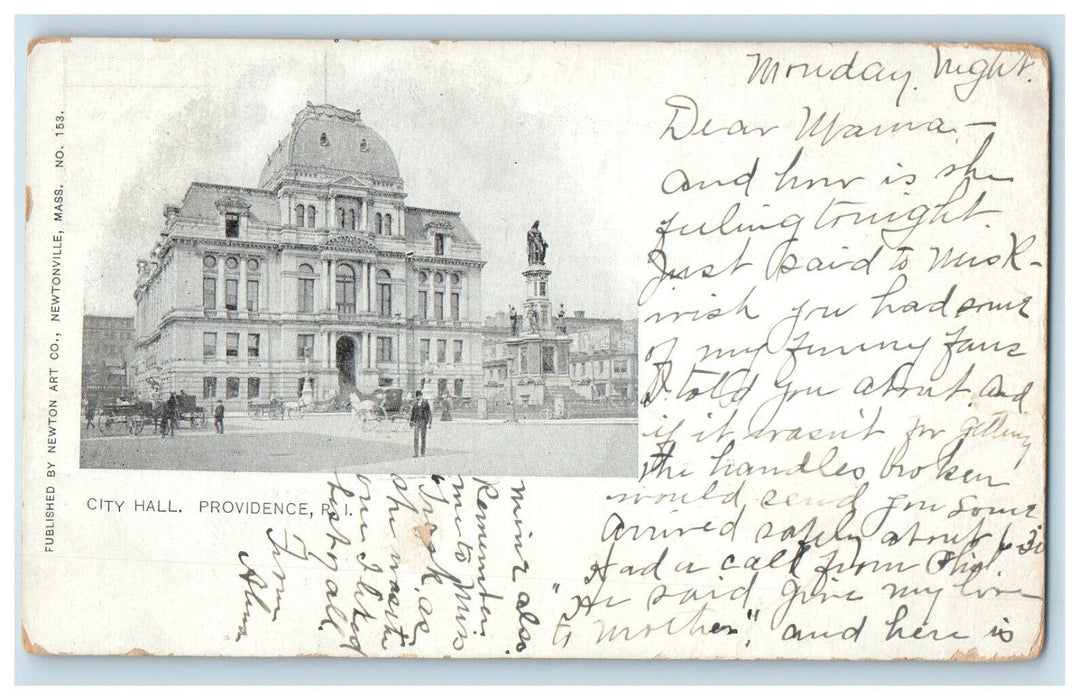 PUBLISHED BY NEWTON ART CO., NEWTONVILLE, MASS. NO. 153.
CITY HALL. PROVIDENCE, R. I.
Monday, Night.
Dear Mama –
and how is she
feeling tonight.
Just said to Miss K –
wish you had some
of my funny fans
I told you about. And
if it wasn't for getting
the handles broken
would send you some
Arrived safely about 6-30
Had a call from Phil.
"He said give my love
to Mother", and here is
mine also.
Remember
me to Miss
Trask, as
she was the
one I liked
best of all.
From
Alma